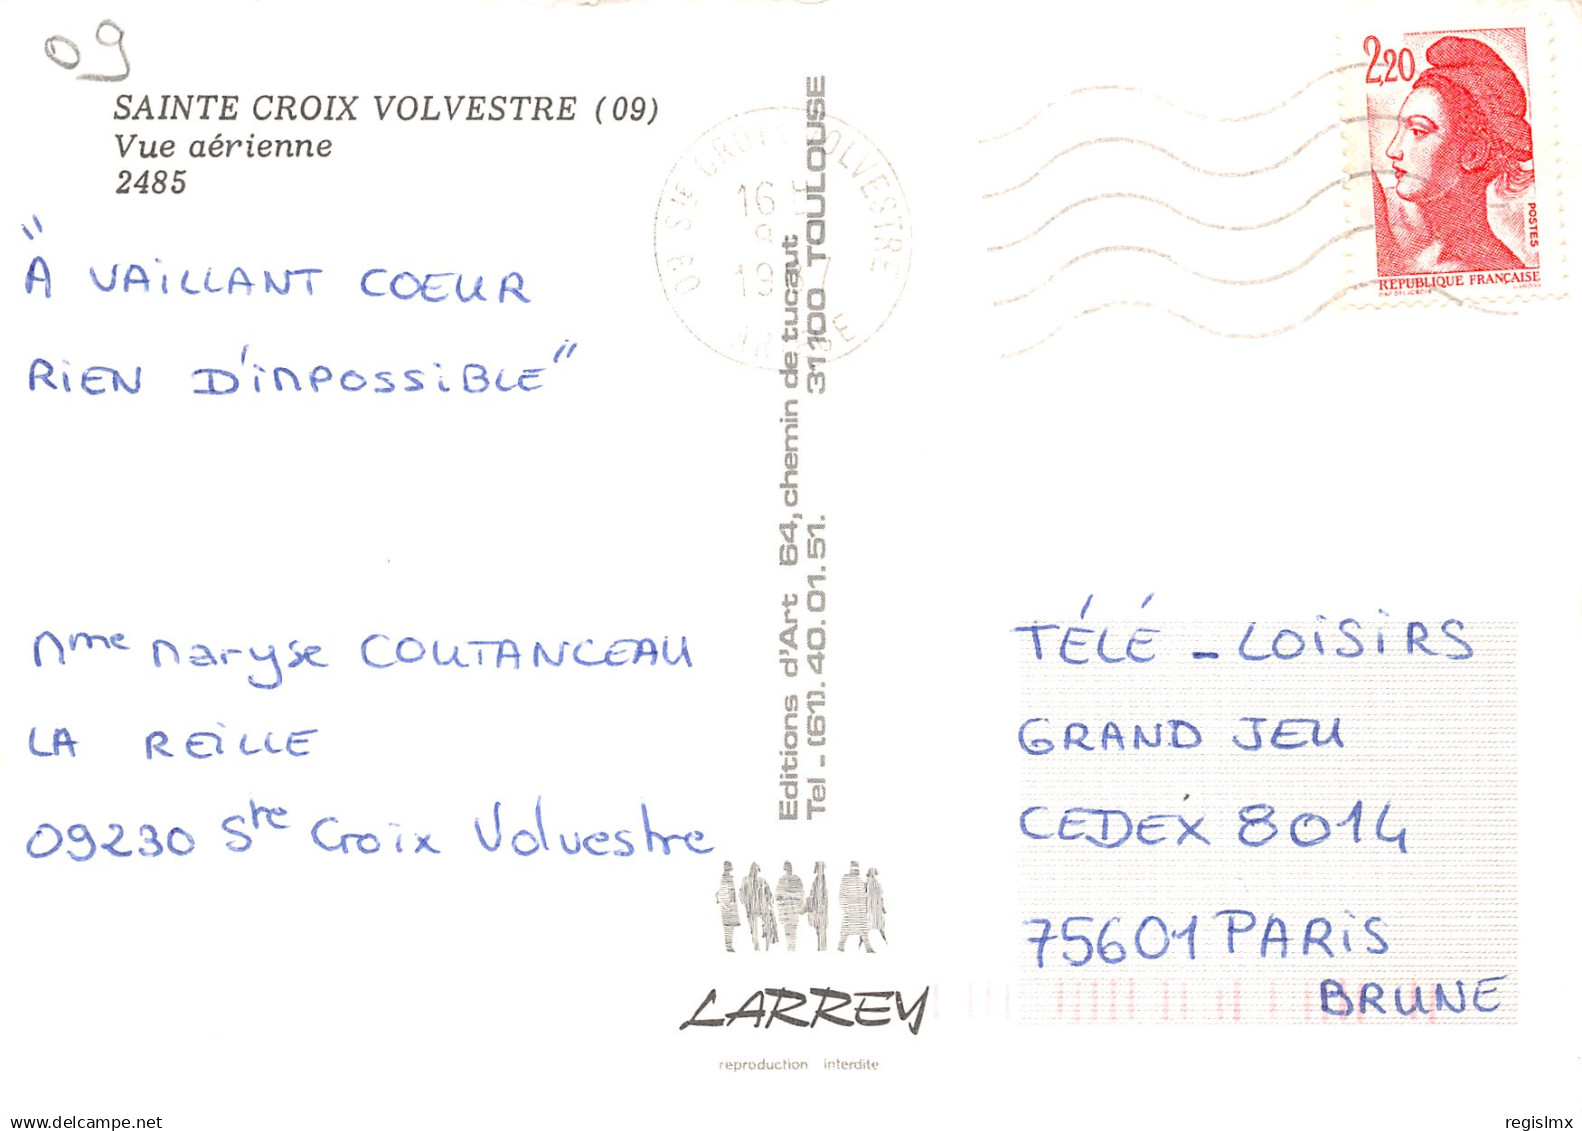 09
SAINTE CROIX VOLVESTRE (09)
Vue aérienne
2485
"A VAILLANT COEUR
RIEN D'IMPOSSIBLE"
Mme Maryse COUTANCEAU
LA REILLE
09230 Ste Croix Volvestre
Editions d'Art 64, chemin de tucaut
Tel - (61). 40. 01. 51. 31100 TOULOUSE
LARREY
reproduction interdite
09 Ste CROIX VOLVESTRE
16 H
8
1987
ARIEGE
2,20
POSTES
REPUBLIQUE FRANÇAISE
TÉLÉ - LOISIRS
GRAND JEU
CEDEX 8014
75601 PARIS
BRUNE
delcampe.net
regislmx